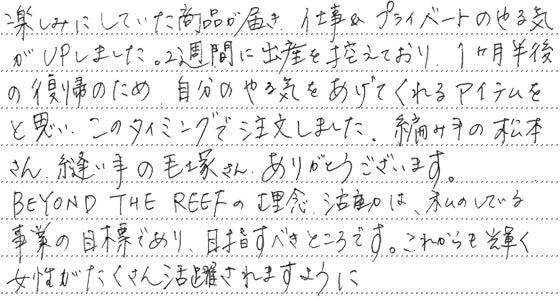 楽しみにしていた商品が届き、仕事&プライベートのやる気
がUPしました。2週間に出産を控えており、1ヶ月半後
の復帰のため、自分のやる気をあげてくれるアイテムを
と思い、このタイミングで注文しました。編み手の松本
さん、縫い手の毛塚さん、ありがとうございます。
BEYOND THE REEFの理念、活動は、私のしている
事業の目標であり、目指すべきところです。これからも輝く
女性がたくさん活躍されますように